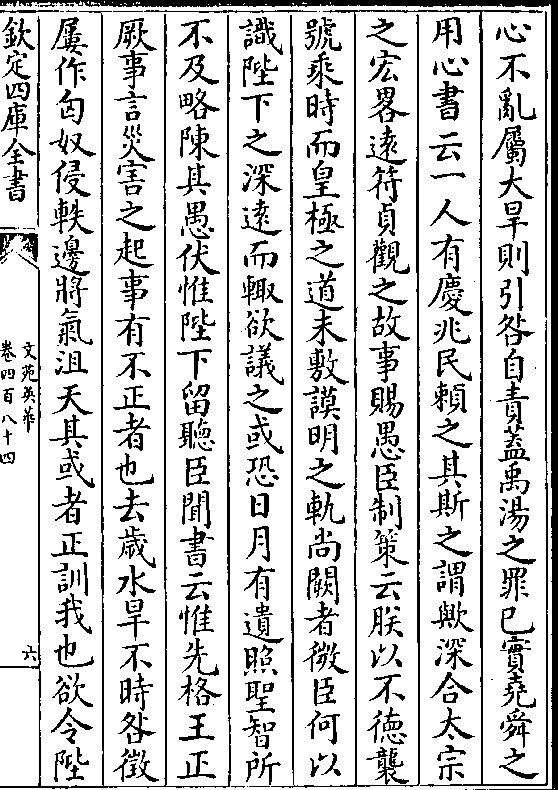 心不亂屬大旱則引咎自責蓋禹湯之罪已實堯舜之
用心書云一人有慶兆民賴之其斯之謂歟深合太宗
之宏畧遠符貞觀之故事賜愚臣制策云朕以不德襲
號乘時而皇極之道未敷謨明之軌尚闕者微臣何以
識陛下之深遠而輙欲議之或恐日月有遺照聖智所
不及略陳其愚伏惟陛下留聽臣聞書云惟先格王正
厥事言災害之起事有不正者也去歲水旱不時咎徵
屢作匈奴侵軼邊將氣沮天其或者正訓我也欲令陛
欽定四庫全書
文苑英華
卷四百八十四
六